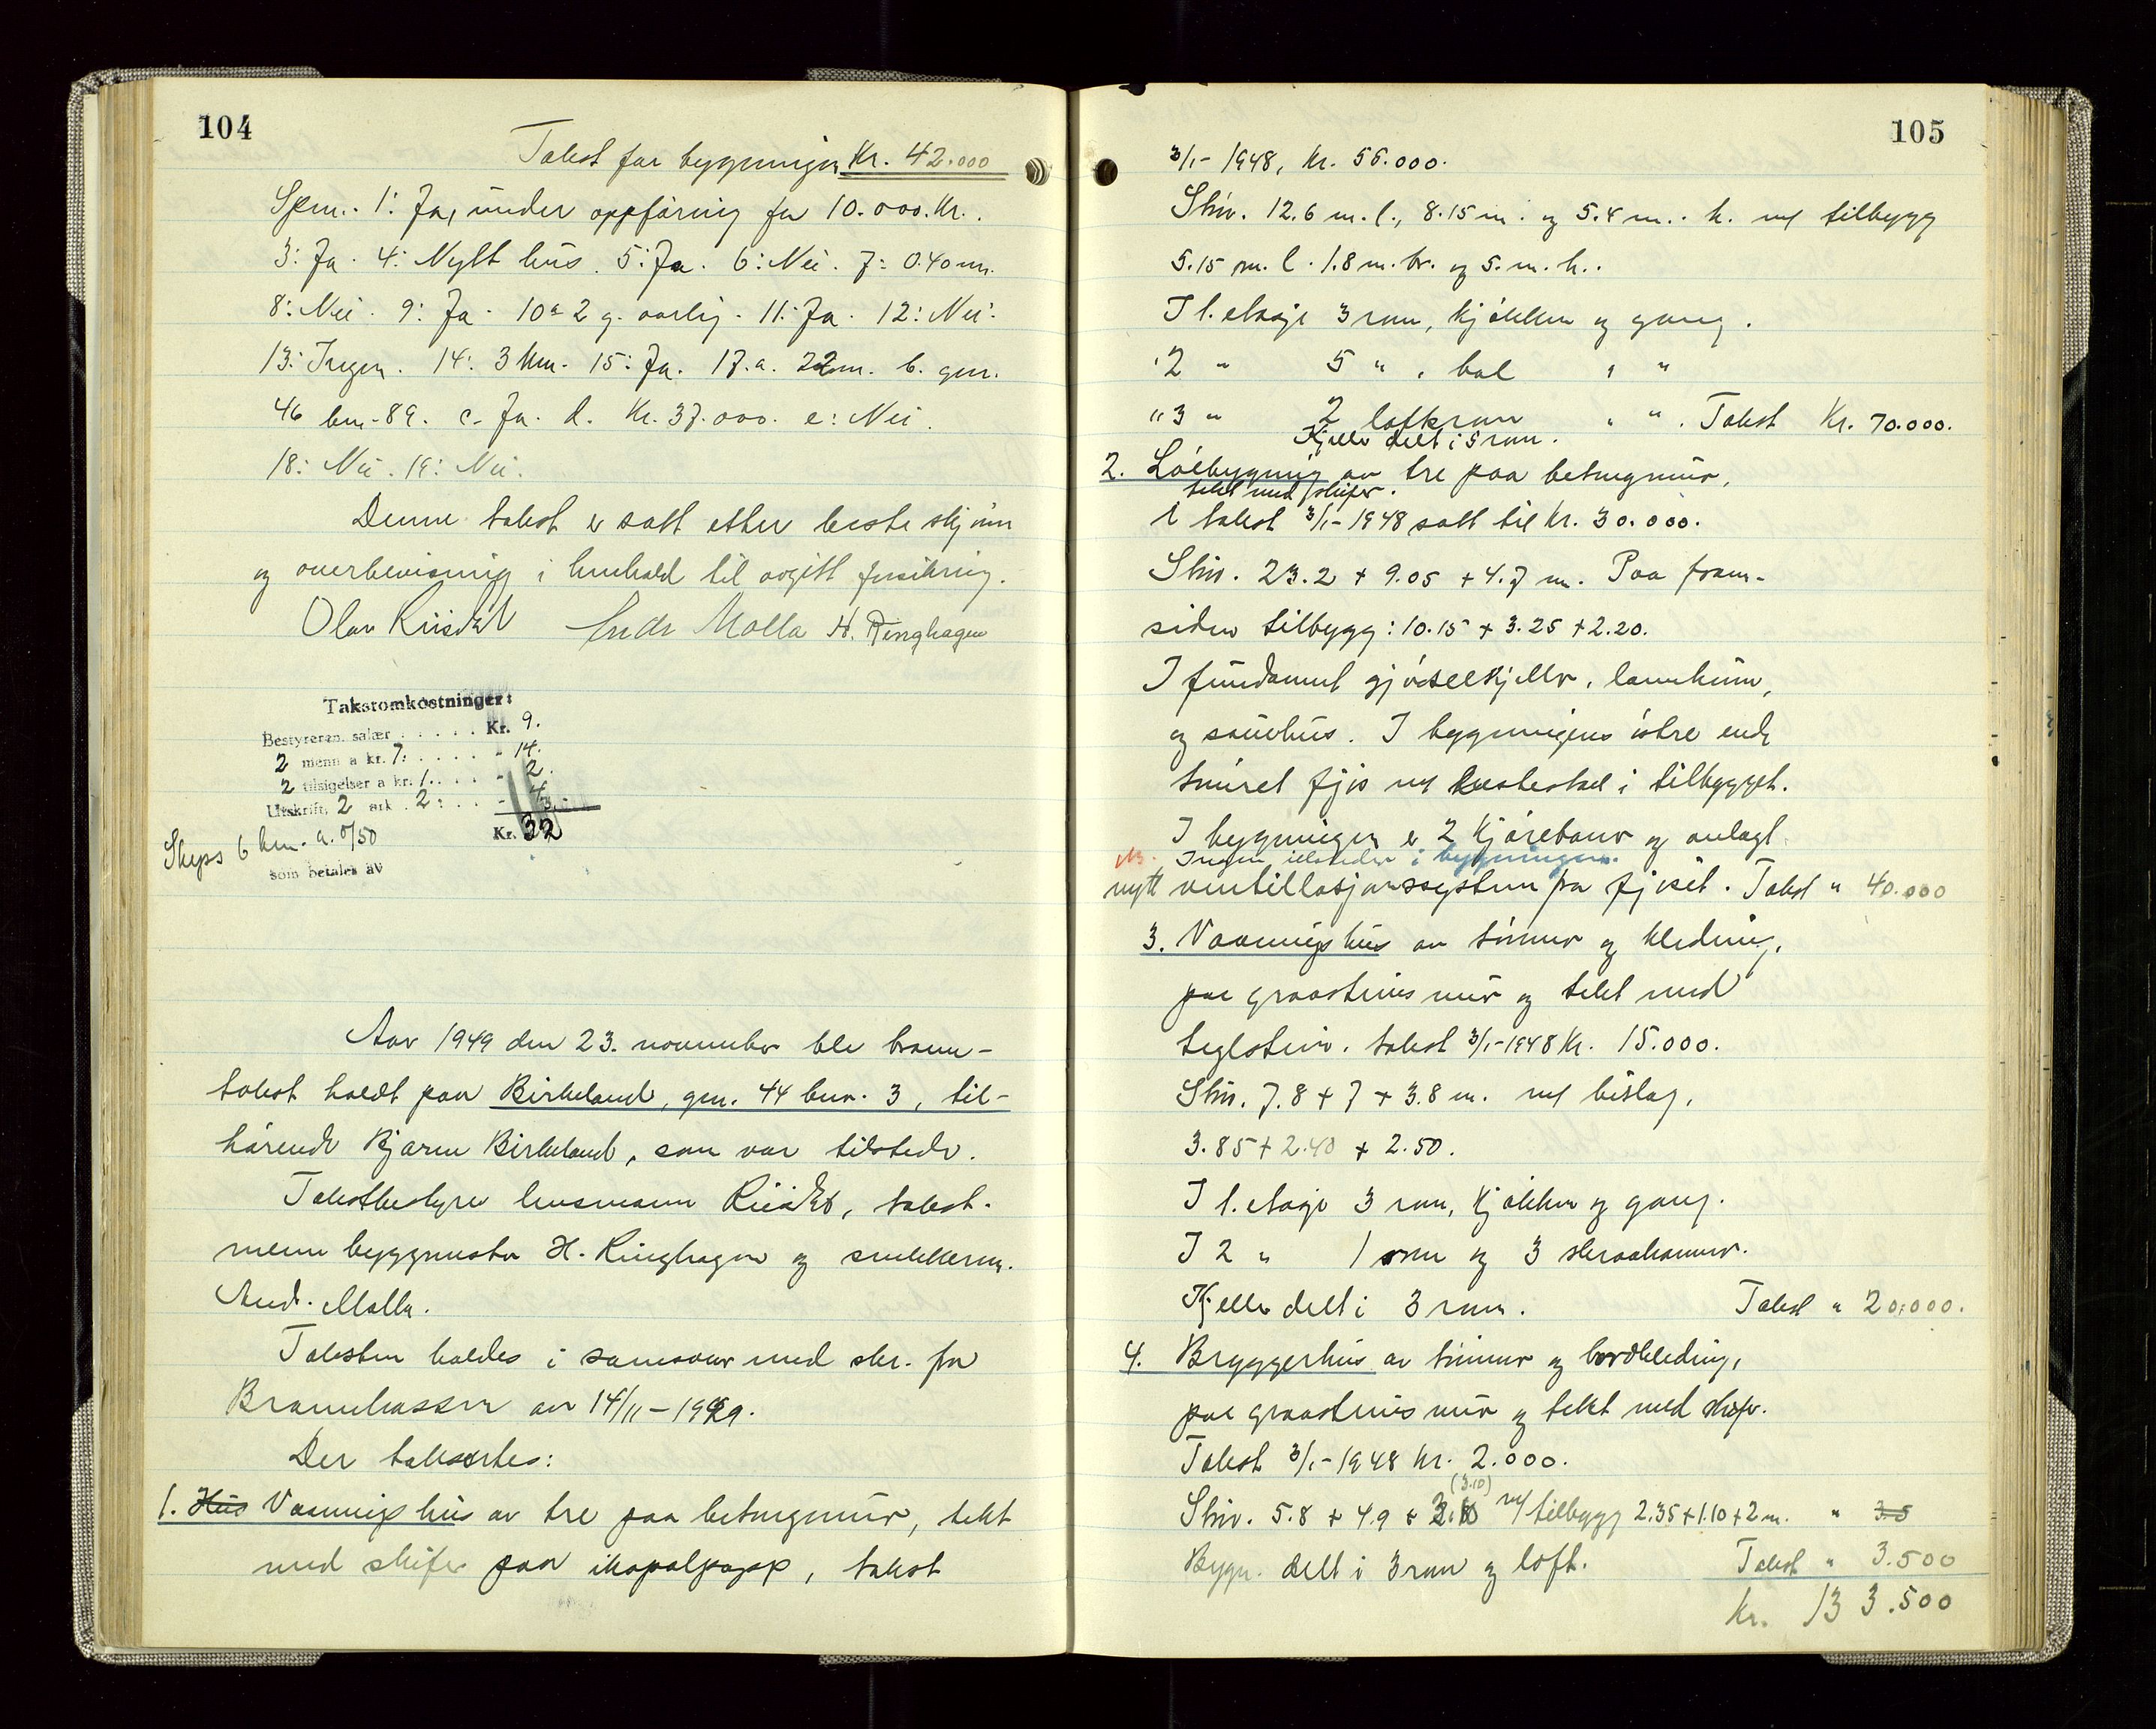 104
Takst for bygningen Kr. 42.000
Spm. 1: Ja, under oppföring for 10.000. Kr.
3: Ja. 4: Nytt hus. 5: Ja. 6: Nei. 7: 0.40 m.
8: Nei. 9: Ja. 10: 2 g. aarlig. 11: Ja. 12: Nei.
13: Ingen. 14: 3 km. 15: Ja. 17. a. 22 m. b. gnr.
46 bnr. 89. c. Ja. d. Kr. 37.000. e: Nei.
18: Nei. 19: Nei.
Denne takst er satt etter beste skjönn
og overbevisning i henhold til avgitt forsikring.
Olav Riisdal Andr Molla H. Ringhagen
Takstomkostninger:
Bestyreren salær . . . . . Kr. 9.
2 menn a kr. 7. . . . . - 14.
2 tilsigelser a kr. 1. . . . - 2.
Utskrift, 2 ark . 2: . . - 4.
Skyss 6 km. a. 0/50 3.-
Kr. 32
som betales av
Aar 1949 den 23. november ble brann-
takst holdt paa Birkeland, gnr. 44 bnr. 3, til-
hörende Bjarne Birkeland, som var tilstede.
Takstbestyrer lensmann Riisdal, takst-
menn byggmester H. Ringhagen og snekkerm.
And. Molla.
Taksten holdes i samsvar med skr. fra
Brannkassen av 14/11-1949.
Der taksertes:
1. Hus Vaaningshus av tre paa betongmur, tekt
med skifer paa ikopalpapp, takst
105
3/1-1948, Kr. 56.000.
Störr. 12.6 m. l., 8.15 m. og 5.4 m. h. m/ tilbygg
5.15 m. l. 1.8 m. br. og 5. m. h..
I 1. etasje 3 rum, kjökken og gang.
" 2 " 5 " , bad " "
" 3 " 2 loftsrum " " . Takst Kr. 70.000.
Kjeller delt i 5 rum.
2. Löebygning av tre paa betongmur,
tekt med skifer.
I takst 3/1-1948 satt til Kr. 30.000.
Störr. 23.2 + 9.05 + 4.7 m. Paa fram-
siden tilbygg: 10.15 + 3.25 + 2.20.
I fundament gjödselkjeller,
og sauehus. I bygningens östre ende
muret fjös m/ hestestall i tilbygget.
I bygningen er 2 kjörebaner og anlagt
Ingen ildsteder i bygningen.
nytt ventillasjonssystem fra fjöset. Takst " 40.000
3. Vaaningshus av tömmer og kledning,
paa graasteins mur og tekt med
teglstein. takst 3/1-1948 Kr. 15.000.
Störr. 7.8 + 7 + 3.8 m. m/ bislag,
3.85 + 2.40 + 2.50.
I 1. etasje 3 rum, kjökken og gang.
I 2 " 1 rum og 3 skraakammer.
Kjeller delt i 3 rum. Takst " 20.000.
4. Bryggerhus av tömmer og bordkledning,
paa graasteins mur og tekt med skifer.
Takst 3/1-1948 Kr. 2.000.
(3.10)
Störr. 5.8 + 4.9 + m/ tilbygg 2.35 + 1.10 + 2 m. " 3.5
Bygn. delt i 3 rum og loft. Takst " 3.500
Kr. 133.500